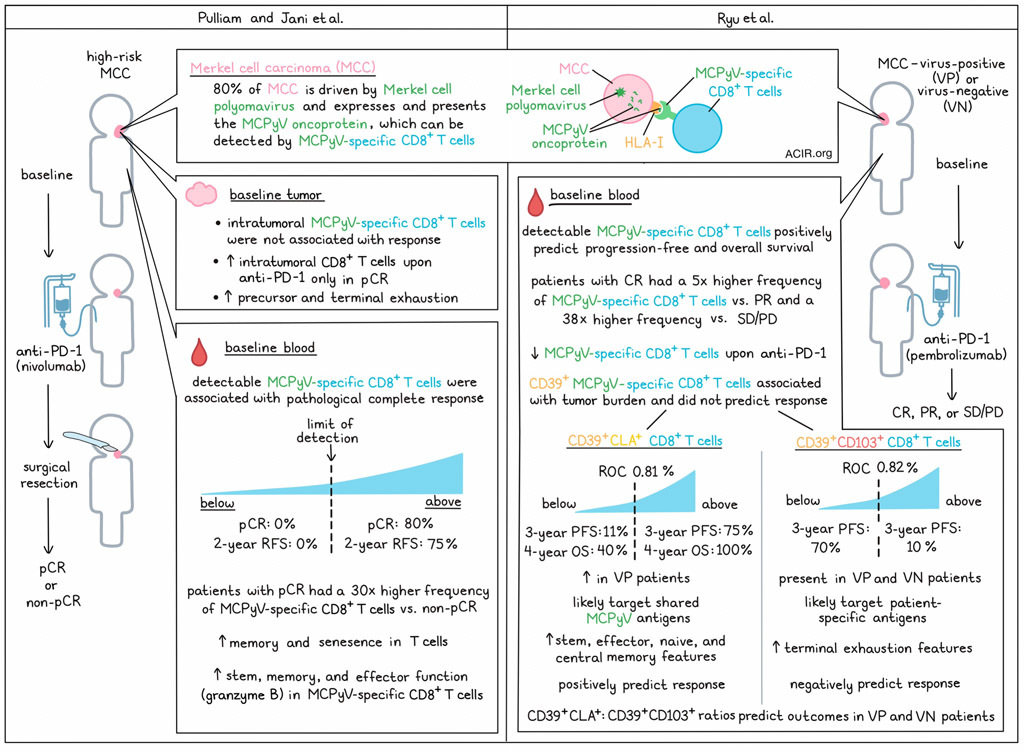 Pulliam and Jani et al.
Ryu et al.
high-risk
MCC
Merkel cell carcinoma (MCC)
80% of MCC is driven by Merkel cell
polyomavirus and expresses and presents
the MCPyV oncoprotein, which can be
detected by MCPyV-specific CD8⁺ T cells
MCC
Merkel cell
polyomavirus
MCPyV
oncoprotein
HLA-I
MCPyV-specific
CD8⁺ T cells
ACIR.org
MCC-virus-positive
(VP) or
virus-negative
(VN)
baseline
anti-PD-1
(nivolumab)
surgical
resection
pCR
or
non-pCR
baseline tumor
• intratumoral MCPyV-specific CD8⁺ T cells
were not associated with response
• ↑ intratumoral CD8⁺ T cells upon
anti-PD-1 only in pCR
• ↑ precursor and terminal exhaustion
baseline blood
detectable MCPyV-specific CD8⁺ T cells were
associated with pathological complete response
limit of
detection
below
above
pCR: 0%
pCR: 80%
2-year RFS: 0%
2-year RFS: 75%
patients with pCR had a 30x higher frequency
of MCPyV-specific CD8⁺ T cells vs. non-pCR
↑ memory and senesence in T cells
↑ stem, memory, and effector function
(granzyme B) in MCPyV-specific CD8⁺ T cells
baseline blood
detectable MCPyV-specific CD8⁺ T cells positively
predict progression-free and overall survival
patients with CR had a 5x higher frequency
of MCPyV-specific CD8⁺ T cells vs. PR and a
38x higher frequency vs. SD/PD
↓ MCPyV-specific CD8⁺ T cells upon anti-PD-1
CD39⁺ MCPyV-specific CD8⁺ T cells associated
with tumor burden and did not predict response
CD39⁺CLA⁺ CD8⁺ T cells
ROC 0.81 %
below
above
3-year PFS: 11%
3-year PFS: 75%
4-year OS: 40%
4-year OS: 100%
↑ in VP patients
likely target shared
MCPyV antigens
↑ stem, effector, naive, and
central memory features
positively predict response
CD39⁺CD103⁺ CD8⁺ T cells
ROC 0.82%
below
above
3-year PFS:
70%
3-year PFS:
10 %
present in VP and VN patients
likely target patient-
specific antigens
↑ terminal exhaustion features
negatively predict response
CD39⁺CLA⁺: CD39⁺CD103⁺ ratios predict outcomes in VP and VN patients
baseline
anti-PD-1
(pembrolizumab)
CR, PR, or SD/PD